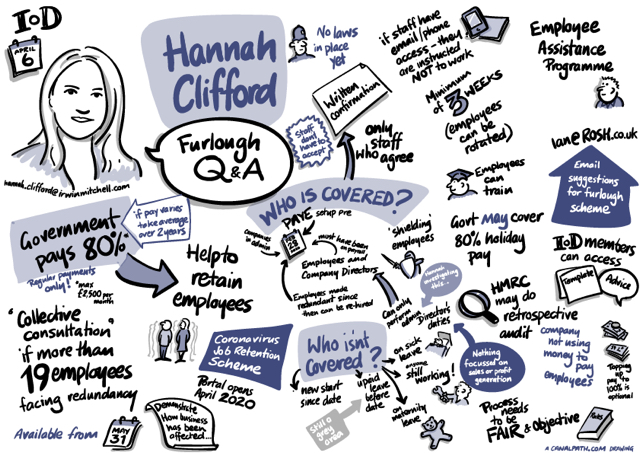 IoD
APRIL
6
Hannah
Clifford
Furlough
Q&A
hannah.clifford@irwinmitchell.com
No laws
in place
yet
if staff have
email/phone
access - they
are instructed
NOT to work
Employee
Assistance
Programme
Written
confirmation
Staff
don't
have to
accept
only
staff
who agree
Minimum
of 3 WEEKS
(employees
can be
rotated)
Employees
can
train
Ian@ROSH.co.uk
Email
suggestions
for furlough
scheme
Government
pays 80%
Regular payments
only!
*max
£2,500 per
month
if pay varies
take average
over 2 years
Help to
retain
employees
WHO IS COVERED?
PAYE
setup pre
companies
in admin
must have been
on payroll
Employees and
Company Directors
Employees made
redundant since
then can be re-hired
'shielding'
employees
Can only
perform
Directors
duties
Hannah
investigating
this...
Govt may cover
80% holiday
pay
HMRC
may do
retrospective
audit
IoD members
can access
Template
Advice
'Collective
consultation'
if more than
19 employees
facing redundancy
Available from
MAY
31
Demonstrate
How business
has been
affected...
Coronavirus
Job Retention
Scheme
Portal opens
April 2020
Who isn't
Covered?
new start
since date
Still a
grey
area
unpaid
leave
before
date
on sick
leave
still
working!
on
maternity
leave
Nothing
focussed on
sales or profit
generation
Process
needs
to be
FAIR & Objective
company
not using
money to
pay
employees
Topping
up
pay to
100% is
optional
A CANALPATH.COM DRAWING